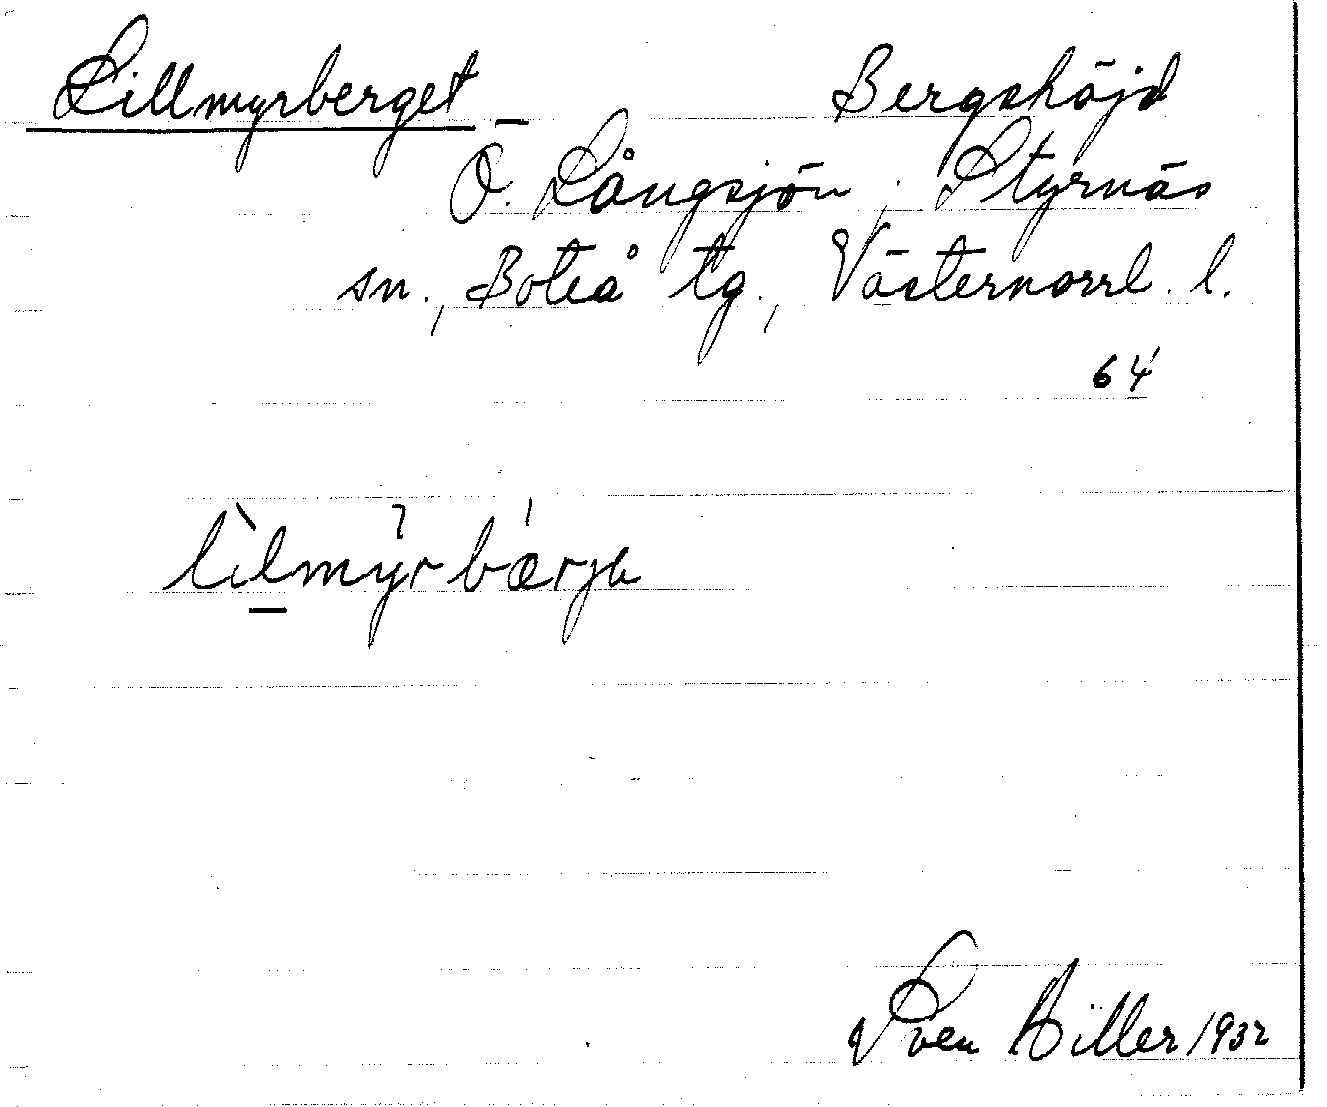 Lillmyrberget Bergshöjd
Ö. Långsjön, Styrnäs
sn., Boteå tg., Västernorrl. l.
64
Sven Hiller 1932